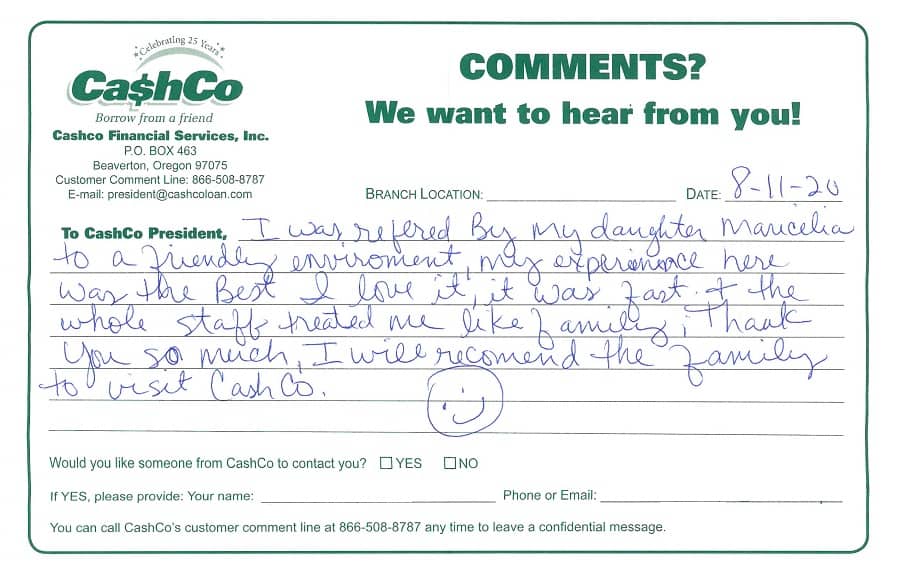 Celebrating 25 Years
Ca$hCo
Borrow from a friend
Cashco Financial Services, Inc.
P.O. BOX 463
Beaverton, Oregon 97075
Customer Comment Line: 866-508-8787
E-mail: president@cashcoloan.com
COMMENTS?
We want to hear from you!
BRANCH LOCATION:
DATE: 8-11-20
To CashCo President, I was refered By my daughter Maricelia
to a friendly enviroment, my experience here
was the Best I love it, it was fast. + the
whole staff treated me like family, Thank
You so much, I will recomend the family
to visit CashCo.
Would you like someone from CashCo to contact you? ☐ YES ☐ NO
If YES, please provide: Your name: Phone or Email:
You can call CashCo's customer comment line at 866-508-8787 any time to leave a confidential message.